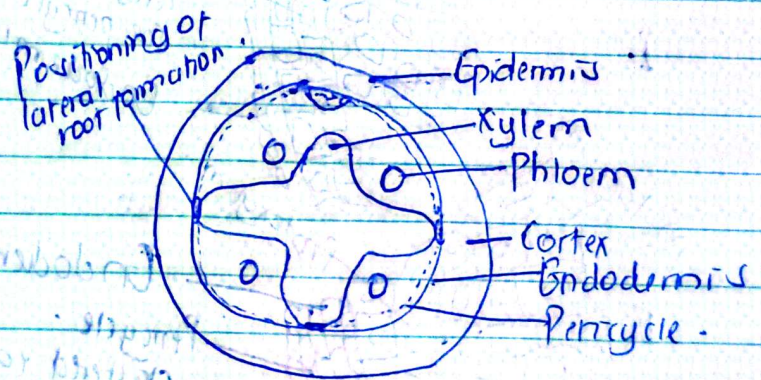 Positioning of
lateral
root formation.
Epidermis
Xylem
Phloem
Cortex
Endodermis
Pericycle.